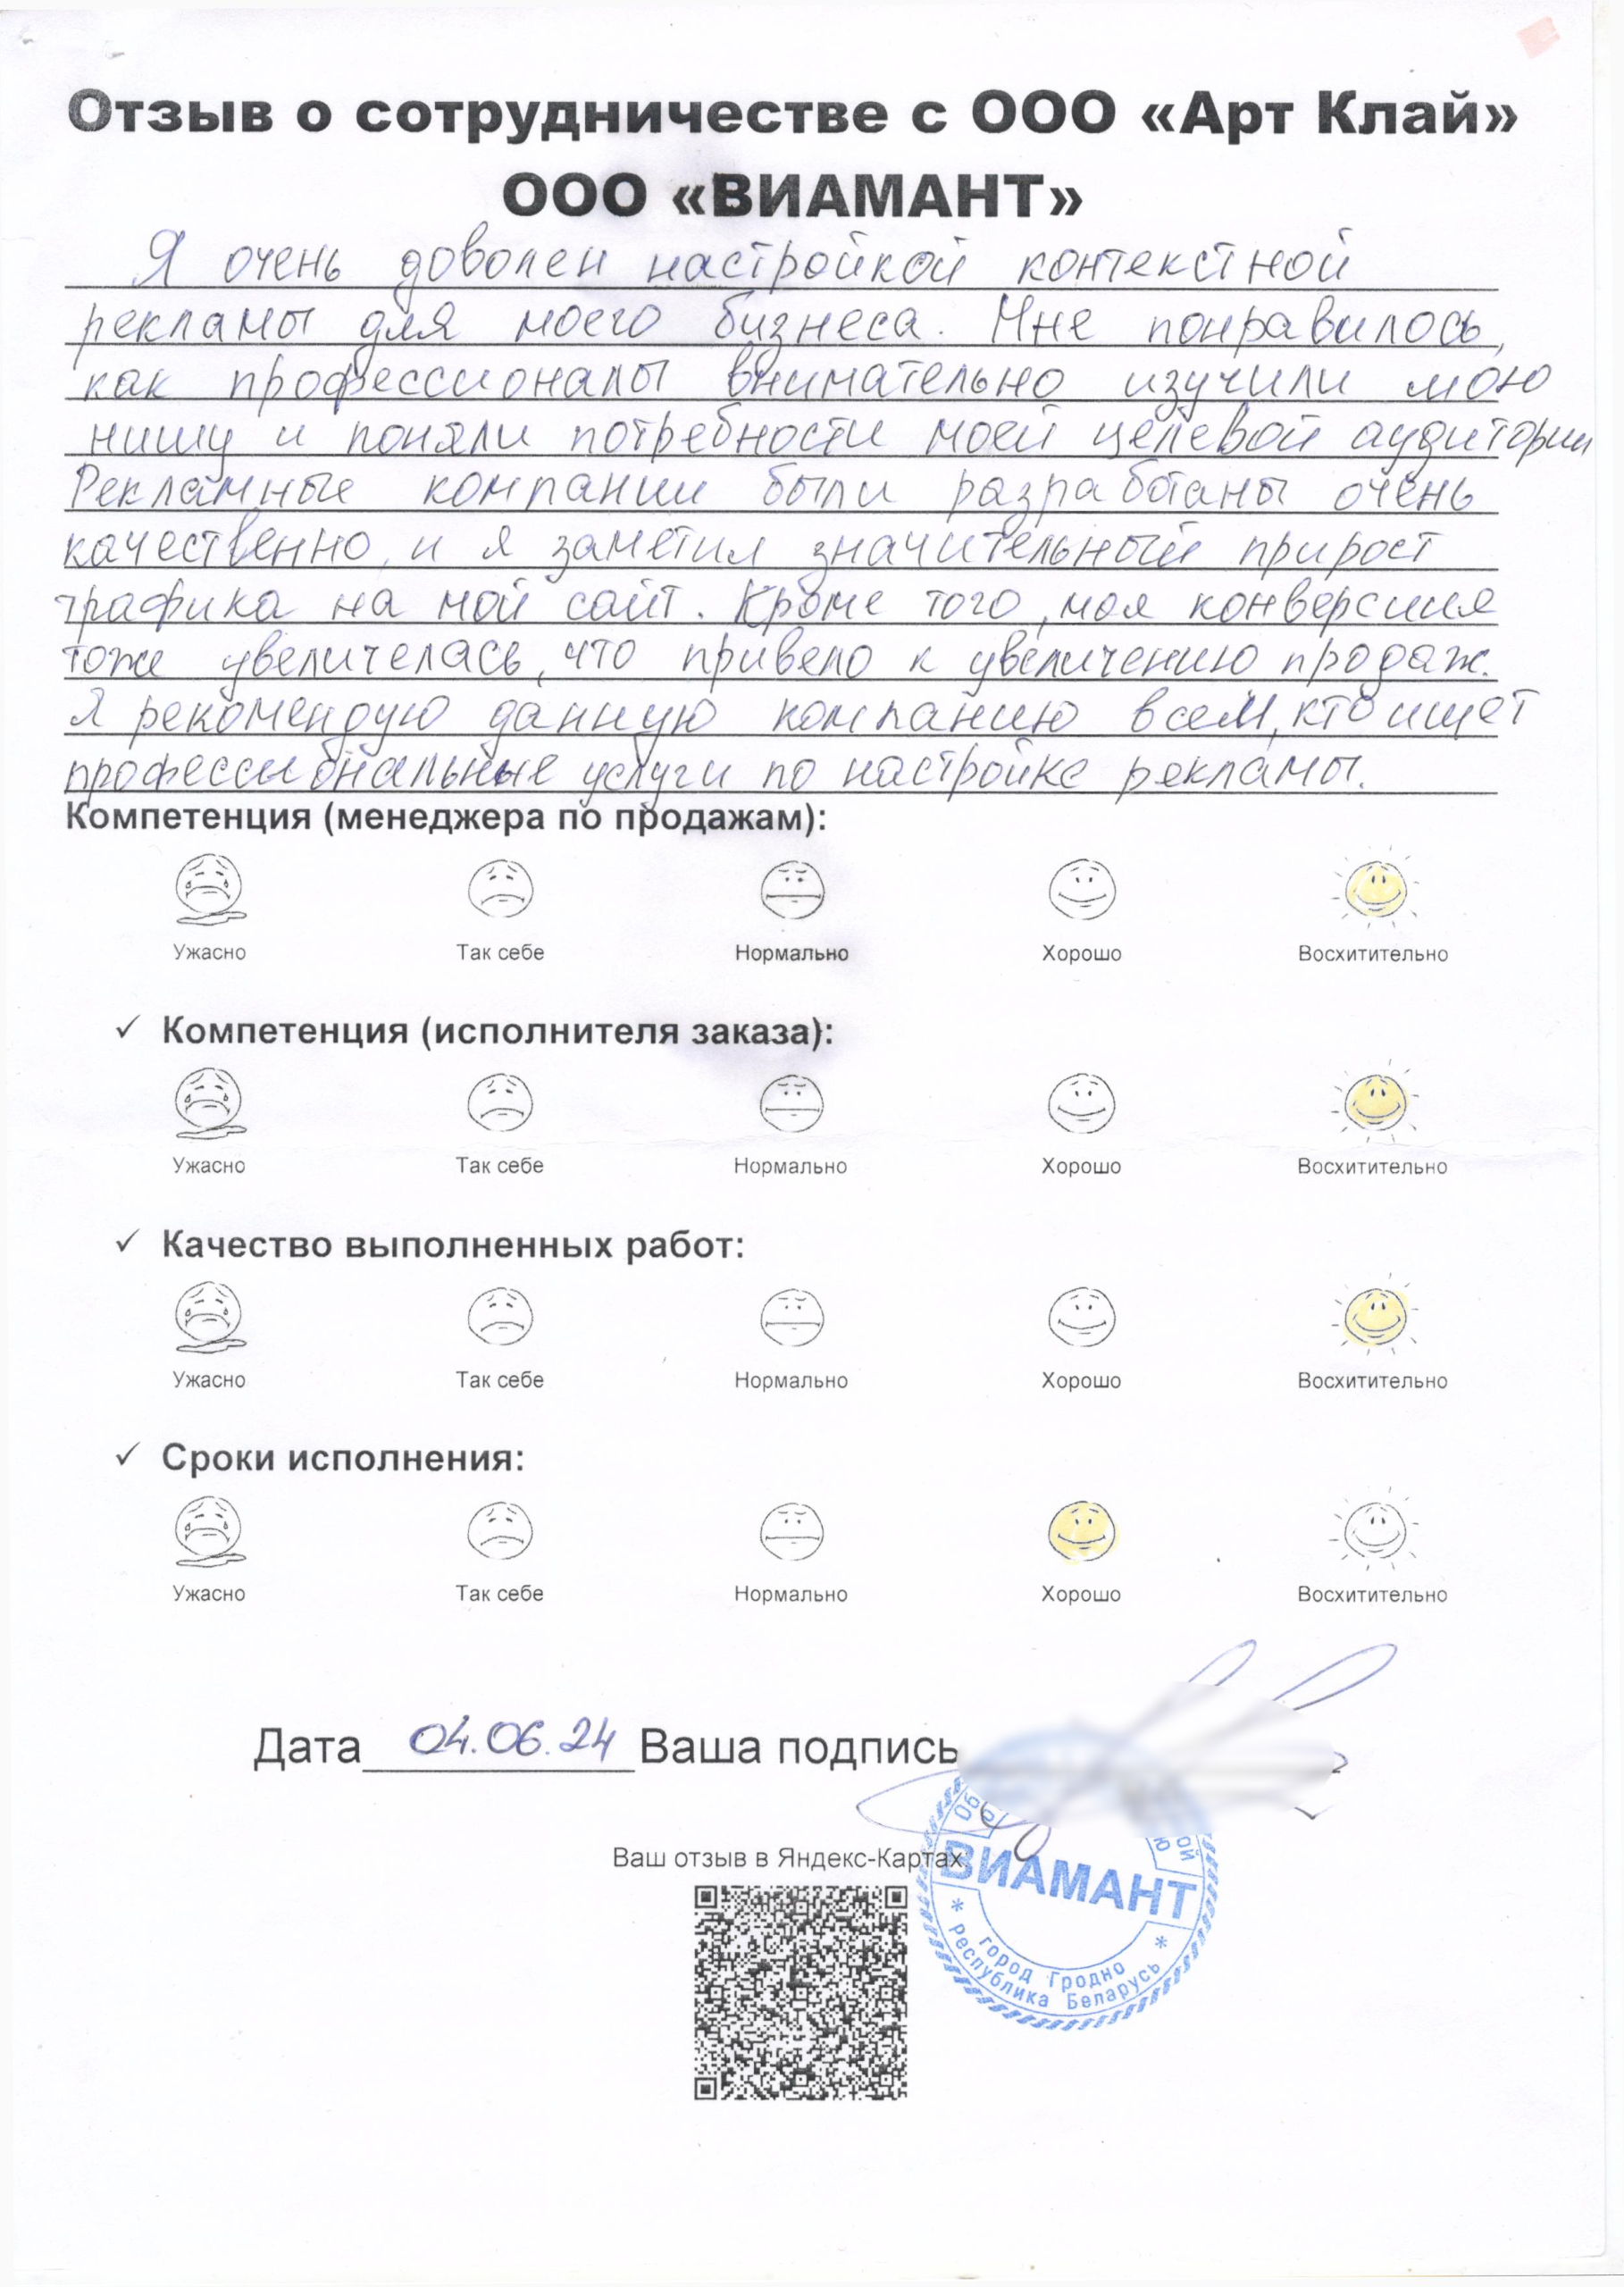 Отзыв о сотрудничестве с ООО «Арт Клай»
ООО «ВИАМАНТ»
Я очень доволен настройкой контекстной
рекламы для моего бизнеса. Мне понравилось,
как профессионалы внимательно изучили мою
нишу и поняли потребности моей целевой аудитории
Рекламные компании были разработаны очень
качественно, и я заметил значительный прирост
трафика на мой сайт. Кроме того, моя конверсия
тоже увеличелась, что привело к увеличению продаж.
Я рекомендую данную компанию всем, кто ищет
профессиональные услуги по настройке рекламы.
Компетенция (менеджера по продажам):
Ужасно Так себе Нормально Хорошо Восхитительно
✓ Компетенция (исполнителя заказа):
Ужасно Так себе Нормально Хорошо Восхитительно
✓ Качество выполненных работ:
Ужасно Так себе Нормально Хорошо Восхитительно
✓ Сроки исполнения:
Ужасно Так себе Нормально Хорошо Восхитительно
Дата 04.06.24 Ваша подпись
Ваш отзыв в Яндекс-Картах
ВИАМАНТ
город Гродно
* Республика Беларусь *